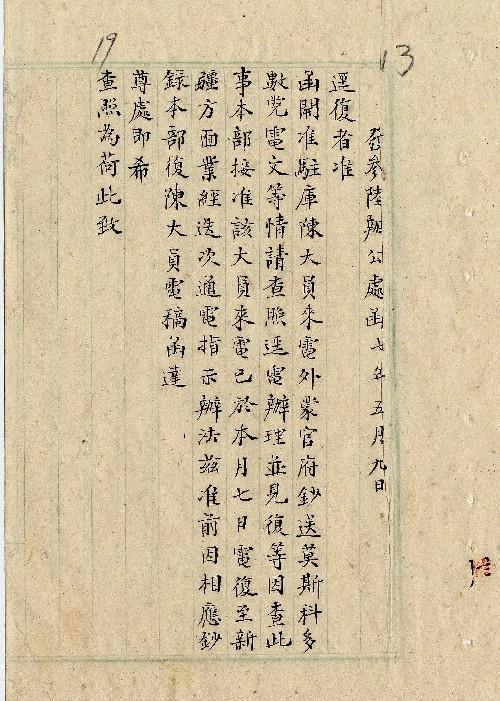 19
13
發參陸辦公處函七年五月九日
逕復者准
函開准駐庫陳大員來電外蒙官府鈔送莫斯科多
數党電文等情請查照逕電辦理並見復等因查此
事本部接准該大員來電已於本月七日電復至新
疆方面業經迭次通電指示辦法茲准前因相應鈔
錄本部復陳大員電稿函達
尊處即希
查照為荷此致